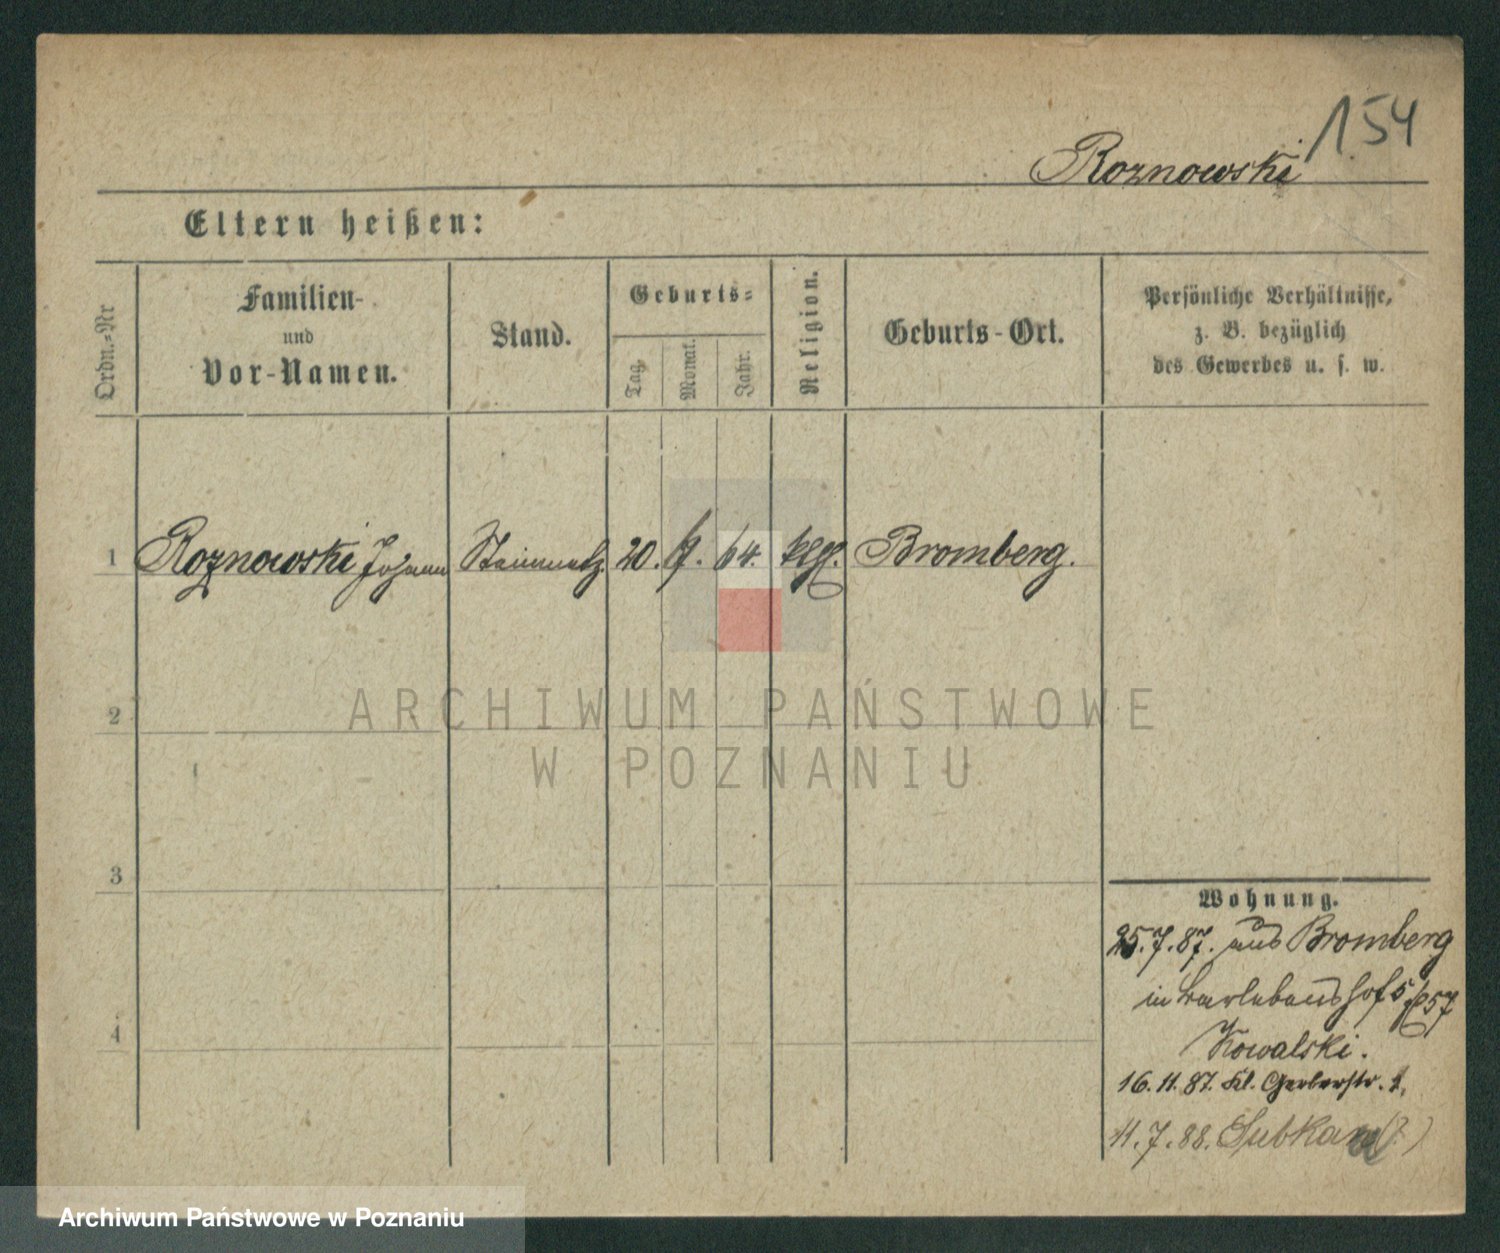 154
Roznowski
Eltern heißen:
Ordn.-Nr
Familien-
und
Vor-Namen.
Stand.
Geburts-
Tag.
Monat.
Jahr.
Religion.
Geburts-Ort.
Persönliche Verhältnisse,
z. B. bezüglich
des Gewerbes u. s. w.
1 Roznowski Johann Steinmetz 20. 9. 64. Bromberg.
2
3
4
Wohnung.
25.7.87. aus Bromberg
in 5
Kowalski.
16.11.87. Kl. Gerberstr.
11.7.88. (?)
ARCHIWUM PAŃSTWOWE
W POZNANIU
Archiwum Państwowe w Poznaniu